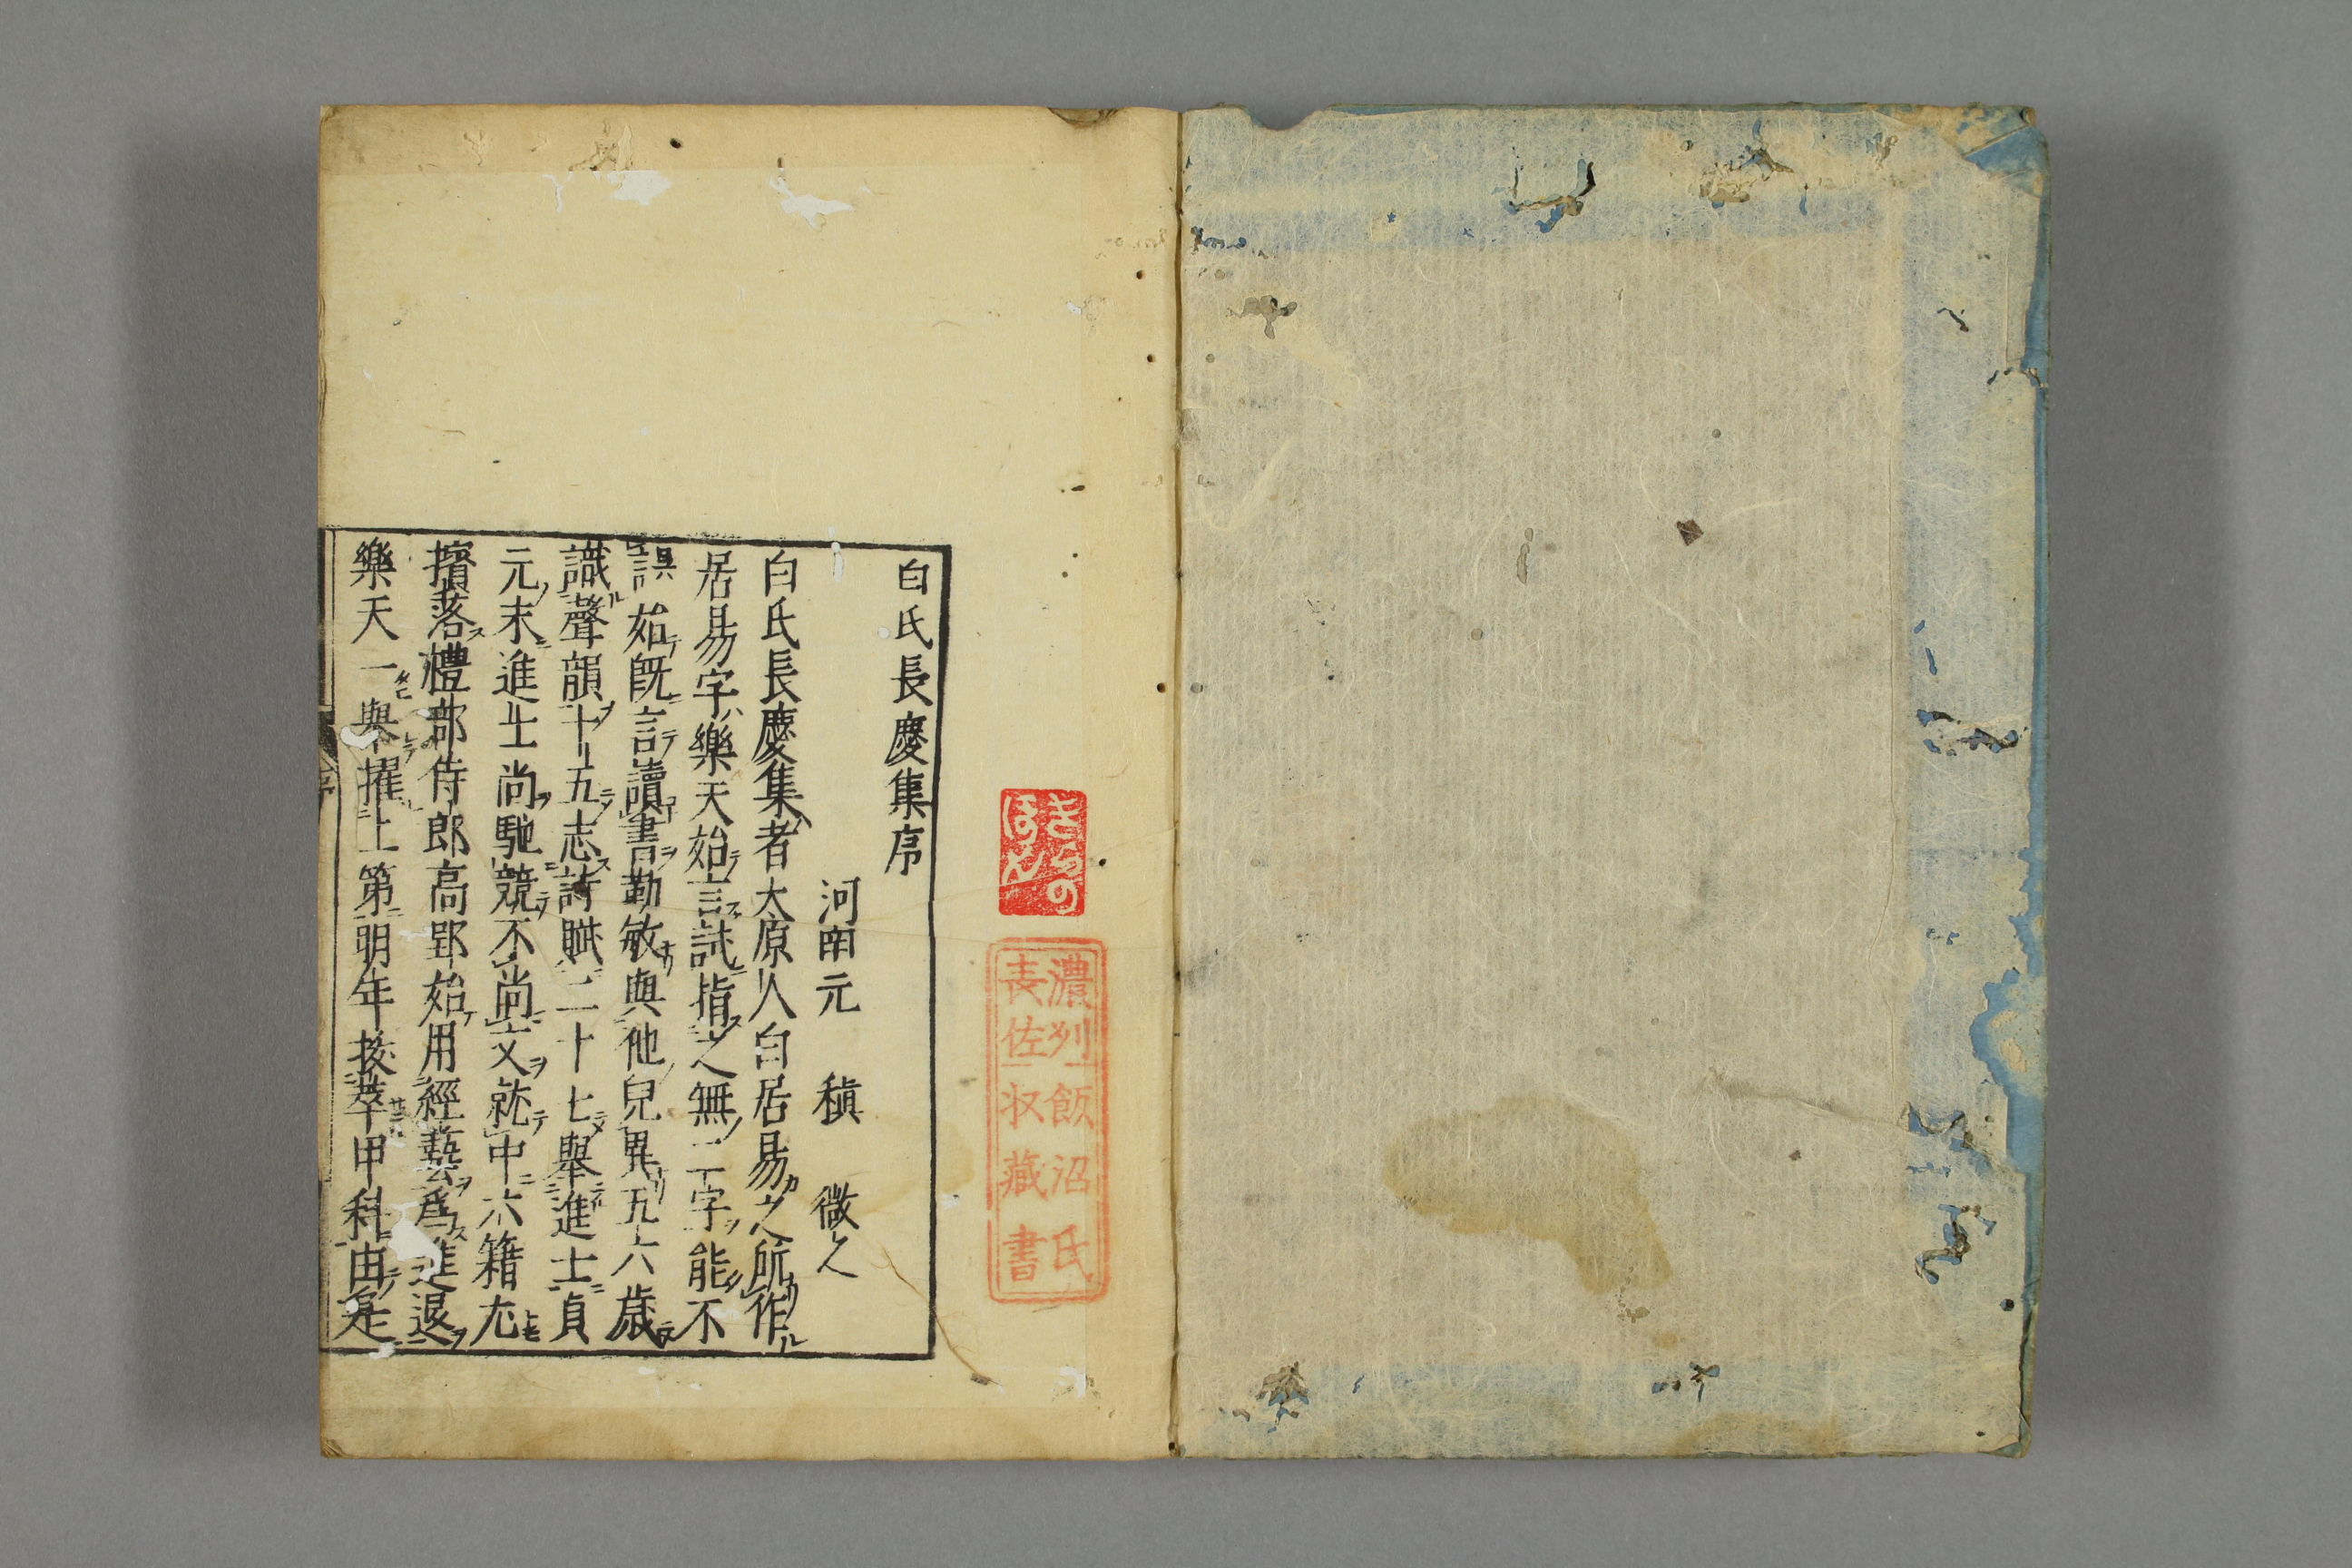 白氏長慶集序
河南元　稹　微之
白氏長慶集者大原人白居易之所作
居易字樂天始言試指之無二字能不
誤始既言讀書勤敏與他兒異五六歳
識聲韻十五志詩賦二十七舉進士貞
元末進士尚馳競不尚文就中六籍尤
擯落禮部侍郎高郢始用經藝爲進退
樂天一舉擢上第明年拔萃甲科由是
序
濃列飯沼氏
表佐収藏書